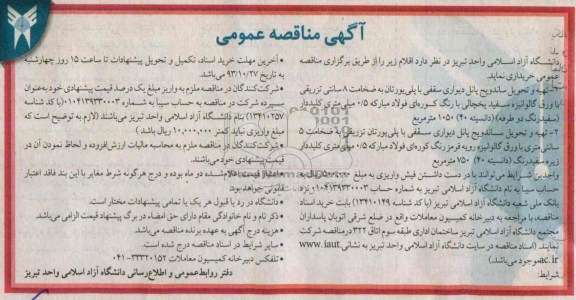 آگهی مناقصه عمومی
دانشگاه آزاد اسلامی واحد تبریز در نظر دارد اقلام زیر را از طریق برگزاری مناقصه
عمومی خریداری نماید.
۱- تهیه و تحویل ساندویچ پانل دیواری سقفی با پلی‌یورتان به ضخامت ۸ سانتی تزریقی
با ورق گالوانیزه سفید یخچالی با رنگ کوره‌ای فولاد مبارکه ۰/۵ میلی‌متری کلیددار
(سفیدرنگ دو طرفه) (دانسیته ۴۰) ۱۰۵۰ مترمربع
۲- تهیه و تحویل ساندویچ پانل دیواری سقفی با پلی‌یورتان تزریقی به ضخامت ۵
سانتی‌متری با ورق گالوانیزه رویه قرمز رنگ کوره‌ای فولاد مبارکه ۰/۵ میلی‌متری کلیددار
زیره سفیدرنگ (دانسیته ۴۰) ۷۵۰ مترمربع
واجدین شرایط می‌توانند با در دست داشتن فیش واریزی به مبلغ ریال به
حساب سیبا به نام دانشگاه آزاد اسلامی تبریز به شماره حساب ۰۱۰۴۱۳۹۳۳۰۰۰۳ نزد
بانک ملی شعبه دانشگاه آزاد اسلامی تبریز (با کد شناسه ۱۳۴۱۰۱۴۹) بابت خرید اسناد
مناقصه، با مراجعه به دبیرخانه کمیسیون معاملات واقع در ضلع شرقی اتوبان پاسداران
مجتمع دانشگاه آزاد اسلامی تبریز ساختمان اداری طبقه سوم اتاق ۳۲۲ درمناقصه شرکت
نمایند. (اسناد مناقصه در سایت دانشگاه آزاد اسلامی واحد تبریز به نشانی www.iaut.
ac.ir موجود می‌باشد.)
شرایط:
• آخرین مهلت خرید اسناد، تکمیل و تحویل پیشنهادات تا ساعت ۱۵ روز چهارشنبه
به تاریخ ۹۳/۱۰/۲۷ می‌باشد.
• شرکت‌کنندگان در مناقصه ملزم به واریز مبلغ یک درصد قیمت پیشنهادی خود به‌عنوان
سپرده شرکت در مناقصه به حساب سیبا به شماره ۰۱۰۴۱۳۹۳۳۰۰۰۳ (با کد شناسه
۱۳۴۱۰۲۵۷) بنام دانشگاه آزاد اسلامی واحد تبریز می‌باشند (لازم به توضیح است که
مبلغ واریزی نباید کمتر ۱۰,۰۰۰,۰۰۰ ریال باشد)
• شرکت‌کنندگان در مناقصه ملزم به محاسبه مالیات ارزش‌افزوده و لحاظ نمودن آن در
قیمت پیشنهادی خود می‌باشند.
شده در ماه بوده و درج هرگونه شرط مغایر با این بند فاقد اعتبار
قانونی خواهد بود.
• دانشگاه در رد یا قبول هر یک یا تمامی پیشنهادات مختار است.
• ذکر نام و نام خانوادگی مقام دارای حق امضاء در برگ پیشنهاد قیمت الزامی می‌باشد.
• هزینه درج آگهی به عهده برنده مناقصه می‌باشد.
• سایر شرایط در اسناد مناقصه درج شده است.
• تلفکس دبیرخانه کمیسیون معاملات ۳۳۳۲۰۱۵۲-۰۴۱
دفتر روابط‌عمومی و اطلاع‌رسانی دانشگاه آزاد اسلامی واحد تبریز